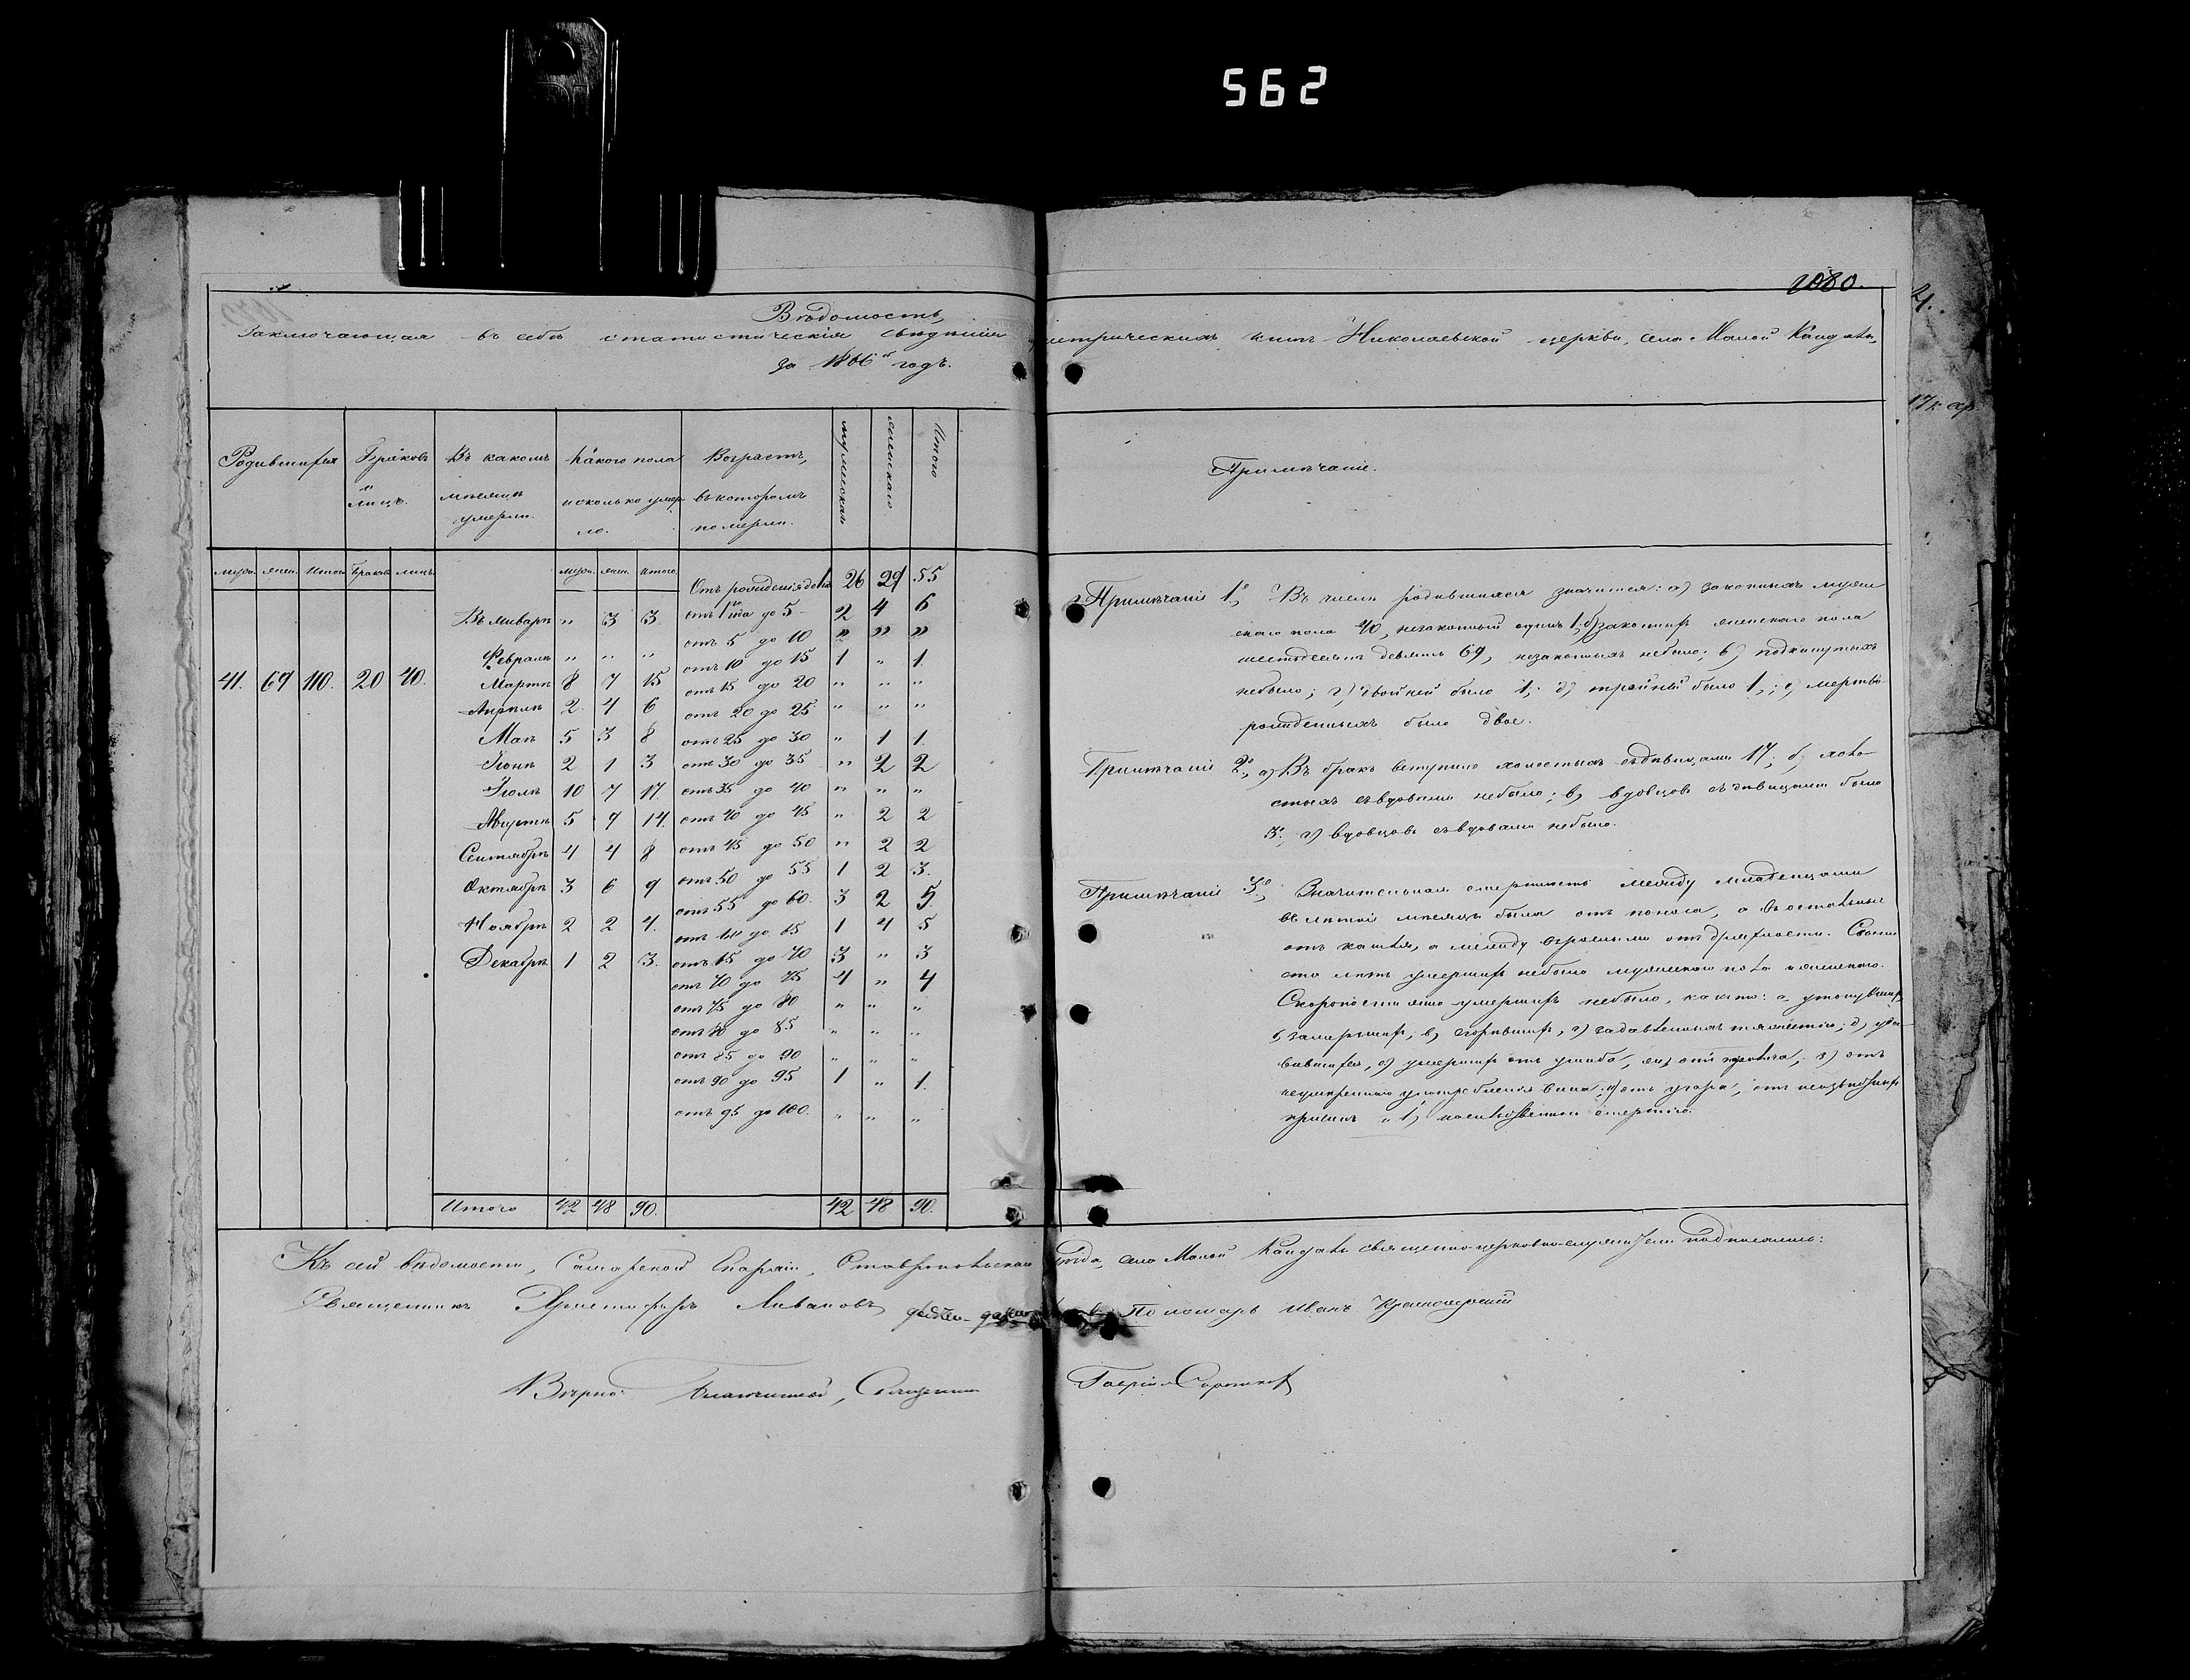 562
1080.
Вѣдомость,
Заключающая въ себѣ статистическія свѣдѣнія метрическихъ книгъ Николаевской церкви, села Малой Кандалы,
за 1866й годъ.
Родившихся
Браковъ и лицъ.
Въ какомъ мѣсяцѣ умерли.
Какого пола и сколько умерло.
Возрастъ, въ которомъ померли.
мужескаго
женскаго
Итого
Примѣчаніе.
муж. жен. Итого Браковъ лицъ. муж. жен. Итого
41. 69 110. 20 40.
Въ Январѣ „ 3 3.
Февралѣ „ „ „
Мартѣ 8 7 15
Апрѣлѣ 2 4 6
Маѣ 5 3 8
Іюнѣ 2 1 3
Іюлѣ 10 7 17
Августѣ 5 9 14.
Сентябрѣ 4 4 8
Октябрѣ 3 6 9
Ноябрѣ 2 2 4.
Декабрѣ 1 2 3.
Отъ рожденія до 1го 26 29 55
отъ 1го до 5 2 4 6
отъ 5 до 10 „ „ „
отъ 10 до 15 1 „ 1.
отъ 15 до 20 „ „ „
отъ 20 до 25 „ „ „
отъ 25 до 30 „ 1 1.
отъ 30 до 35 „ 2 2
отъ 35 до 40 „ „ „
отъ 40 до 45 „ 2 2
отъ 45 до 50 „ 2 2
отъ 50 до 55 1 2 3.
отъ 55 до 60. 3 2 5.
отъ 60 до 65 1 4 5
отъ 65 до 70 3 „ 3
отъ 70 до 75 4 „ 4
отъ 75 до 80 „ „ „
отъ 80 до 85 „ „ „
отъ 85 до 90 „ „ „
отъ 90 до 95 1 „ 1.
отъ 95 до 100. „ „ „
Итого 42 48 90. 42 48 90.
Примѣчаніе 1е, Въ числѣ родившихся значится: а) законныхъ муже
скаго пола 40, незаконный одинъ 1; б) законныхъ женскаго пола
шестьдесятъ девять 69, незаконныхъ небыло; в) подкинутыхъ
небыло; г) двойней было 1; д) тройней было 1,; е) мертво
рожденныхъ было двое.
Примѣчаніе 2е, а) Въ бракъ вступило холостыхъ съ дѣвицами 17; б) холо
стыхъ съ вдовами небыло; в) вдовцовъ съ дѣвицами было
3; г) вдовцовъ съ вдовами небыло.
Примѣчаніе 3е, Значительная смертность между младенцами
въ лѣтніе мѣсяцы была отъ поноса, а въ остальные
отъ кашля, а между взрослыми отъ дряхлости. Свыше
ста лѣтъ умершихъ небыло мужескаго пола и женскаго.
Скоропостижно умершихъ небыло, какъ то: а, утонувшихъ,
б) замерзшихъ, в) сгорѣвшихъ, г) задавленныхъ тяжестію; д) уда
вившихся, е) умершихъ отъ ушиба, з) отъ
неумѣреннаго употребленія вина; и) отъ угара, отъ неизвѣстныхъ
причинъ и і) насильственною смертію.
Къ сей вѣдомости, Самарской Епархіи, Ставропольскаго уѣзда, села Малой Кандалы священно-церковно-служители подписались:
Священникъ Христофоръ Ливановъ Пономарь Иванъ
Вѣрно: Благочинный, Священникъ Гавріилъ
4.